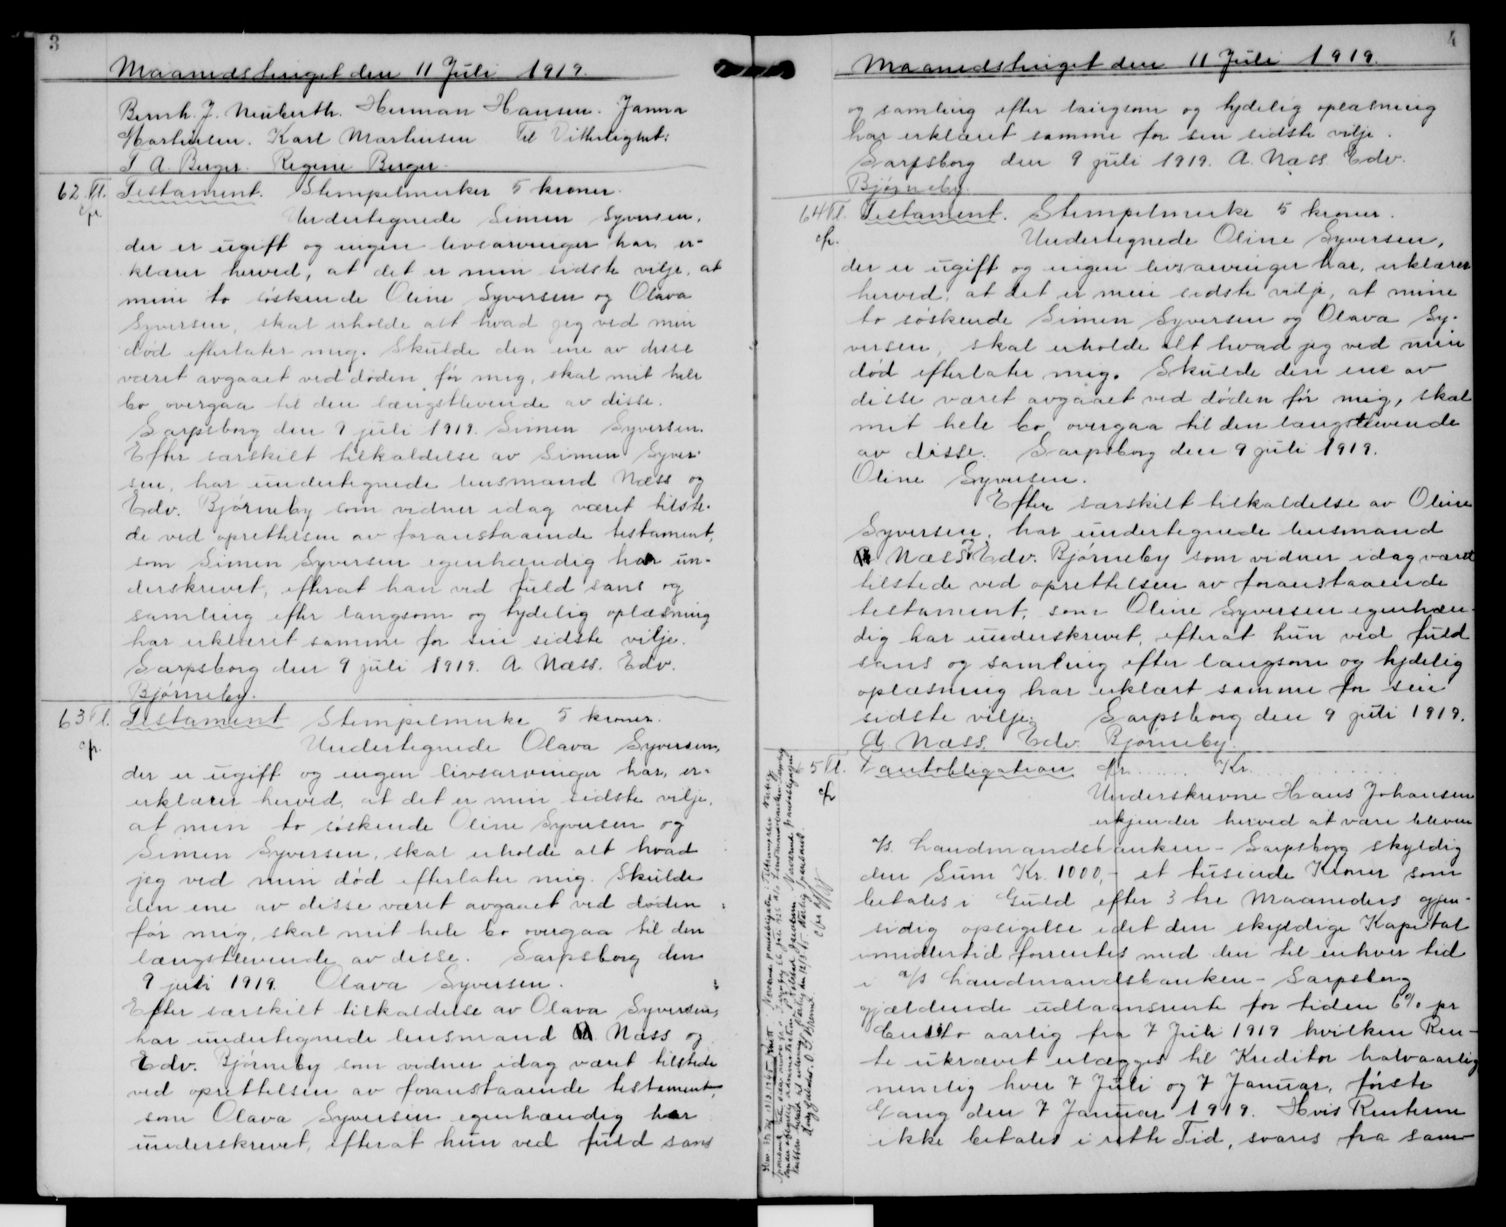 3
Maanedstinget den 11 Juli 1919.
Bernh. J. Neuberth. Herman Hansen. Janna
Martinsen. Karl Martinsen Til Vitterlighet:
T A. Berger. Regine Berger.
62 Pl. Testament. Stempelmerker 5 kroner.
cfr. Undertegnede Simen Syversen,
der er ugift og ingen livsarvinger har, er-
klærer herved, at det er min sidste vilje, at
mine to søskende Oline Syversen og Olava
Syversen, skal erholde alt hvad jeg ved min
død efterlater mig. Skulde den ene av disse
været avgaaet ved døden før mig, skal mit hele
bo overgaa til den længstlevende av disse.
Sarpsborg den 9 juli 1919. Simen Syversen.
Efter særskilt tilkaldelse av Simen Syver-
sen, har undertegnede lensmand Næss og
Edv. Bjørneby som vidner idag været tilste-
de ved oprettelsen av foranstaaende testament,
som Simen Syversen egenhændig har un-
derskrevet, efterat han ved fuld sans og
samling efter langsom og tydelig oplæsning
har erklæret samme for sin sidste vilje.
Sarpsborg den 9 juli 1919. A Næss. Edv.
Bjørneby.
63 Pl. Testament Stempelmerke 5 kroner.
cfr. Undertegnede Olava Syversen,
der er ugift og ingen livsarvinger har, er-
erklærer herved, at det er min sidste vilje,
at min to søskende Oline Syversen og
Simen Syversen, skal erholde alt hvad
jeg ved min død efterlater mig. Skulde
den ene av disse været avgaaet ved døden
før mig, skal mit hele bo overgaa til den
længstlevende av disse. Sarpsborg den
9 juli 1919. Olava Syversen.
Efter særskilt tilkaldelse av Olava Syversen,
har undertegnede lensmand A Næss og
Edv. Bjørneby som vidner idag været tilstede
ved oprettelsen av foranstaaende testament,
som Olava Syversen egenhændig har
underskrevet, efterat hun ved fuld sans
4
Maanedstinget den 11 Juli 1919.
og samling efter langsom og tydelig oplæsning
har erklæret samme for sin sidste vilje.
Sarpsborg den 9 juli 1919. A. Næss Edv.
Bjørneby.
64 Pl. Testament. Stempelmerke 5 kroner.
cfr. Undertegnede Oline Syversen,
der er ugift og ingen livsarvinger har, erklærer
herved, at det er min sidste vilje, at mine
to søskende Simen Syversen og Olava Sy-
versen, skal erholde alt hvad jeg ved min
død efterlater mig. Skulde den ene av
disse været avgaaet ved døden før mig, skal
mit hele bo overgaa til den længstlevende
av disse. Sarpsborg den 9 juli 1919.
Oline Syversen.
Efter særskilt tilkaldelse av Oline
Syversen, har undertegnede lensmand
A Næss & Edv. Bjørneby som vidner idag været
tilstede ved oprettelsen av foranstaaende
testament, som Oline Syversen egenhæn-
dig har underskrevet, efterat hun ved fuld
sans og samling efter langsom og tydelig
oplæsning har erklært samme for sin
sidste vilje. Sarpsborg den 9 juli 1919.
A. Næss. Edv. Bjørneby.
65 Pl. Pantobligation for ..... Kr. ..........
cfr Underskrevne Hans Johansen
erkjender herved at være bleven
a/s. Landmandsbanken - Sarpsborg skyldig
den Sum Kr. 1000,- et tusende Kroner som
betales i Guld efter 3 tre Maaneders gjen-
sidig opsigelse idet den skyldige Kapital
imidlertid forrentes med den til enhver tid
i a/s Landmandsbanken - Sarpsborg
gjældende udlaansrente for tiden 6% pr
Cento aarlig fra 7 Juli 1919 hvilken Ren-
te ukrævet erlægges til Kreditor halvaarlig
nemlig hver 7 Juli og 7 Januar, første
Gang den 7 Januar 1919. Hvis Renterne
ikke betales i rette Tid, svares fra sam-